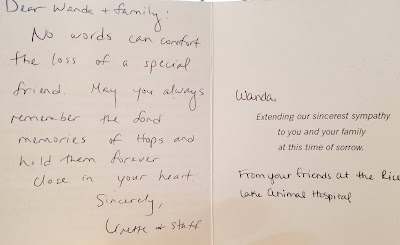 Dear Wanda + family:
No words can comfort
the loss of a special
friend. May you always
remember the fond
memories of Hops and
hold them forever
close in your heart
Sincerely,
+ staff
Wanda,
Extending our sincerest sympathy
to you and your family
at this time of sorrow.
From your friends at the Rice
Lake Animal Hospital